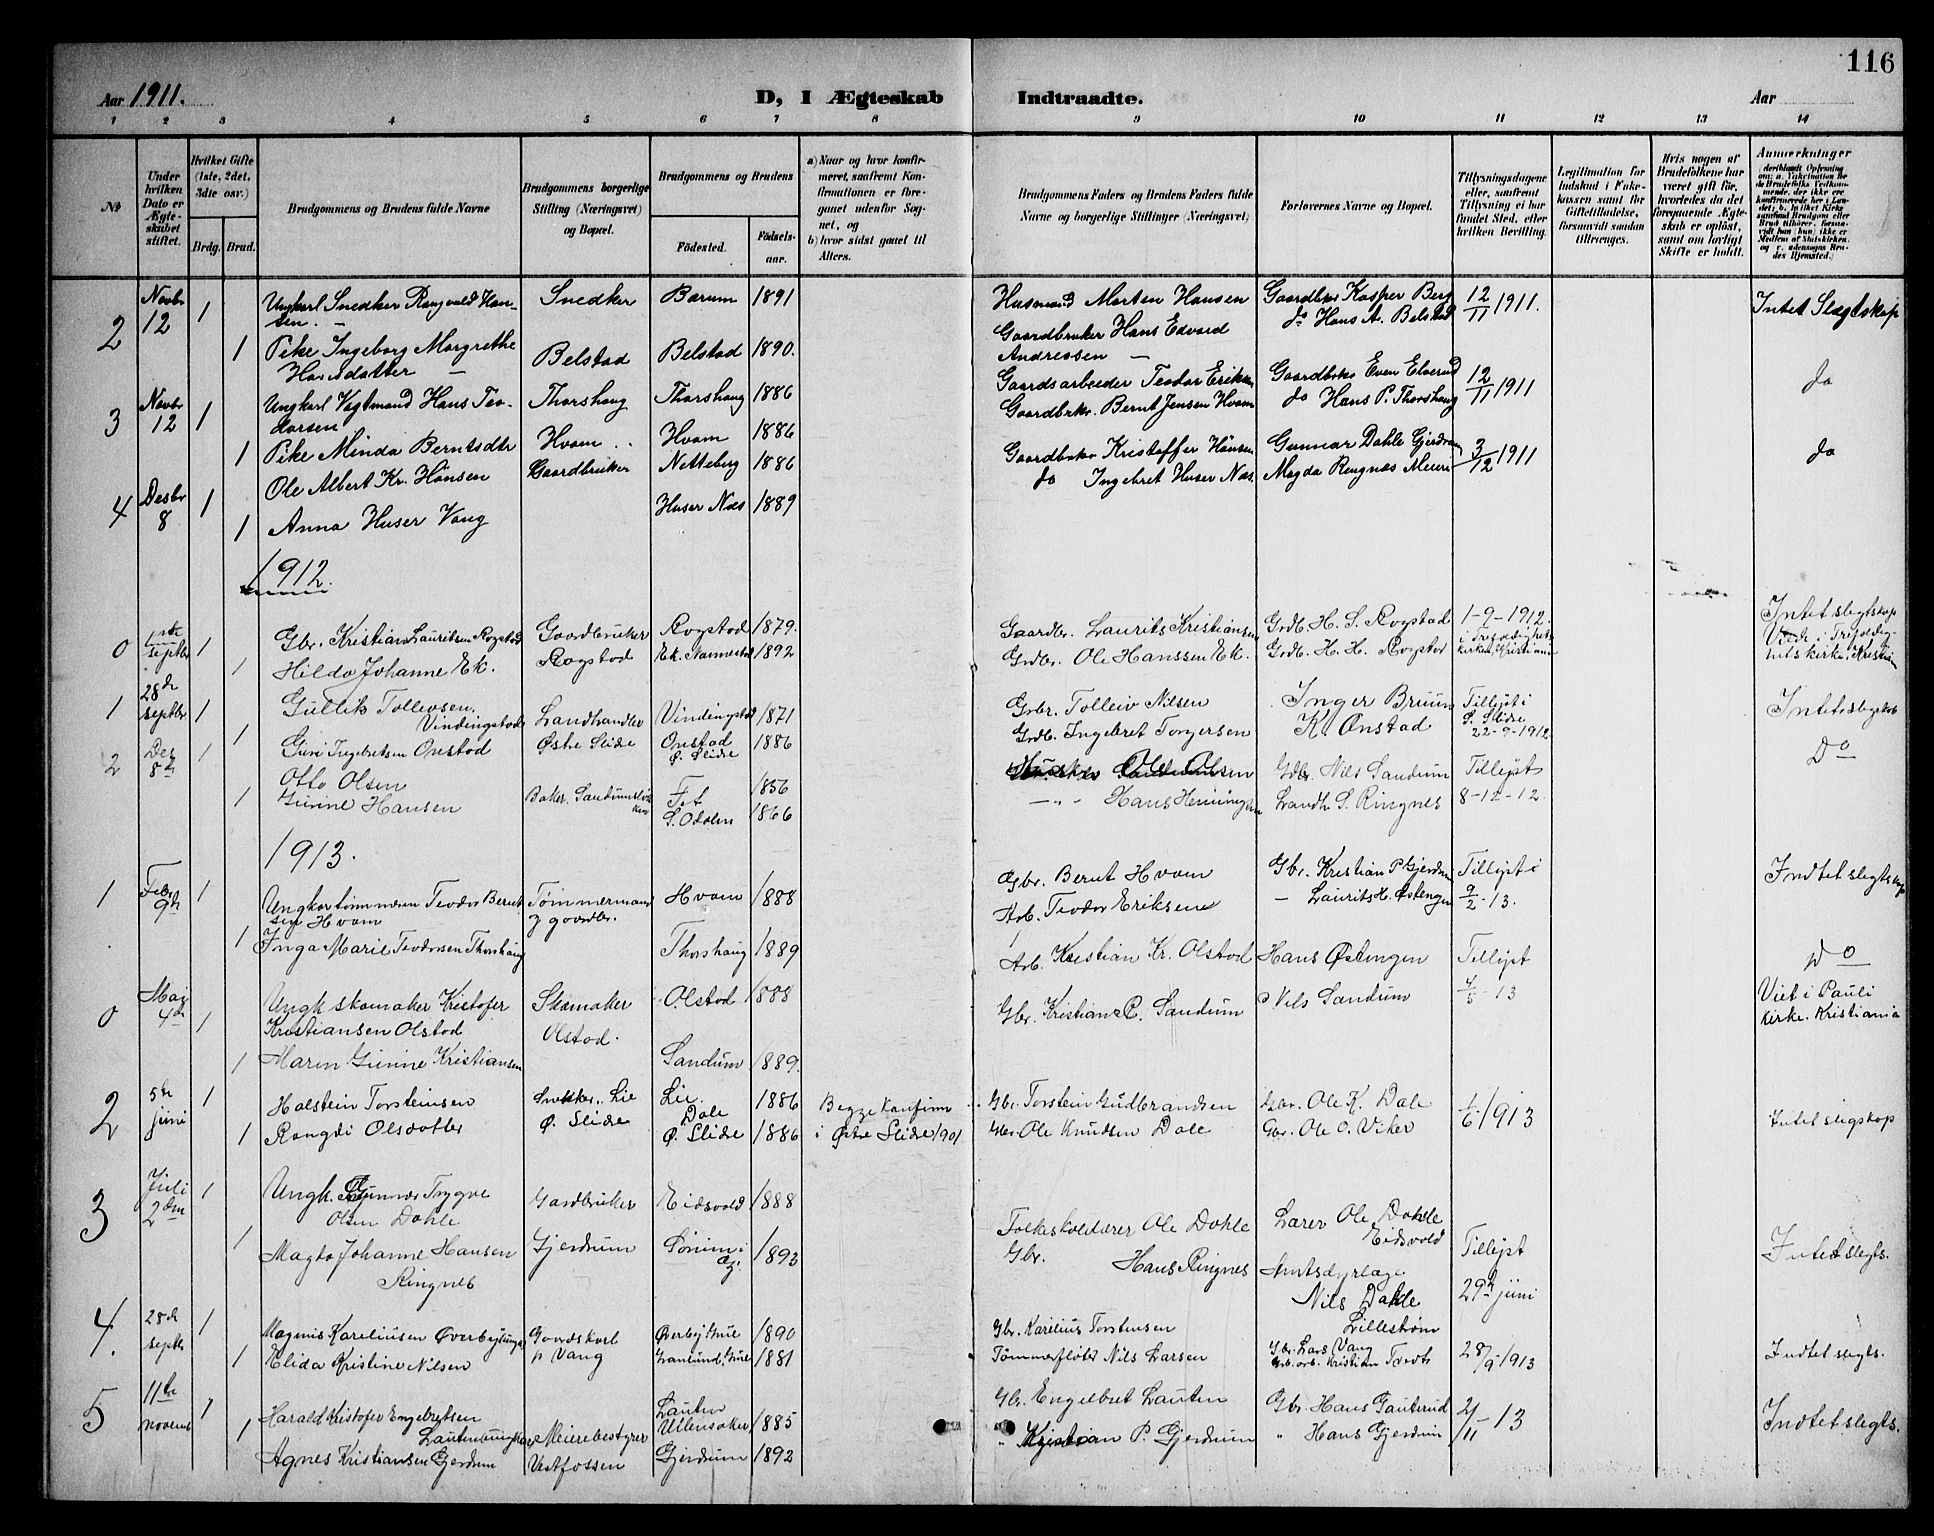 116
Aar 1911.
D, I Ægteskab
Indtraadte.
Aar
1 2 3 4 5 6 7 8 9 10 11 12 13 14
№
Under hvilken Dato er Ægteskabet stiftet.
Hvilket Gifte (1ste, 2det, 3dte osv.)
Brdg. Brud.
Brudgommens og Brudens fulde Navne
Brudgommens borgerlige Stilling (Næringsvei) og Bopæl.
Brudgommens og Brudens
Födested.
Födselsaar.
a) Naar og hvor konfirmeret, saafremt Konfirmationen er foregaaet udenfor Sognet, og
b) hvor sidst gaaet til Alters.
Brudgommens Faders og Brudens Faders fulde Navne og borgerlige Stillinger (Næringsvei)
Forlovernes Navne og Bopæl.
Tillysningsdagene eller, saafremt Tillysning ei har fundet Sted, efter hvilken Bevilling.
Legitimation for Indskud i Enkekassen samt for Giftetilladelse, forsaavidt saadan tiltrænges.
Hvis nogen af Brudefolkene har været gift før, hvorledes da det foregaaende Ægteskab er oplöst, samt om lovligt Skifte er holdt.
Anmerkninger
2 Novbr 12 1 Ungkarl Snedker Rangvald Hansen. Snedker Barum 1891 Husmand Morten Hansen Gaardbr Kasper Berg 12/11 1911. Intet Slægtskap
1 Pike Ingeborg Margrethe Hansdatter Belstad Belstad 1890. Gaardbruker Hans Edvard Andressen do Hans A. Belstad
3 Novbr 12 1 Ungkarl Vagtmand Hans Teodorsen Thorshaug Thorshaug 1886 Gaardsarbeider Teodor Eriksen Gaardbrkr Even Elverud 12/11 1911 do
1 Pike Minda Berntsdtr Hvam Hvam 1886 Gaardbrkr. Bernt Jensen Hvam do Hans P. Thorshaug
4 Desbr 8 1 Ole Albert Kr. Hansen Gaardbruker Netteberg 1886 Gaardbrkr Kristoffer Hansen Gunnar Dahle Gjerdrum 3/12 1911 do
1 Anna Huser Vang Huser Næs 1889 do Ingebret Huser Næs. Magda Ringnæs Meieri
1912.
0 1ste septbr 1 Gbr. Kristian Lauritsen Rogstad Gaardbruker Rogstad 1879. Gaardbr. Laurits Kristiansen Grdb. H. S. Rogstad 1-9-1912. i Trefoldighetskirken, Kristiania Intet slegtskap Viede i Trefoldighetskirke, Kristiania
1 Hilda Johanne Ek. Rogstad Ek. Nannestad 1892 Grdbr. Ole Hanssen Ek. Grdb. H. H. Rogstad
1 28de septbr 1 Gullik Tollevsen Vindingstad Landhandler Vindingstad 1871 Grbr. Tolleiv Nilsen Inger Bruun Tillyst i S. Slidre 22-9-1912 Intet slegtskab
1 Guri Ingebretsen Onstad Østre Slidre Onstad Ø. Slidre 1886 Grdb. Ingebret Torgersen K. Onstad
2 Des 8de 1 Otto Olsen Baker. Fet 1856 Ole Olsen Gdbr. Nils Sandum Tillyst Do
1 Gunine Hansen S. Odalen 1866 —"— Hans Henningsen Landh. S. Ringnes 8-12-12.
1913.
1 Febr 9de 1 Ungkar tømmerm Teodor Berntsen Hvam Tømmermand & gaardbr. Hvam 1888 Gbr. Bernt Hvam Gbr. Kristian P Gjerdrum Tillyst i 9/2-13. Indtet slegtskap
1 Inga Marie Teodorsen Thorshaug Thorshaug 1889 Arb. Teodor Eriksen — Laurits H. Østengen
0 Mai 4de 1 Ungk skomaker Kristofer Kristiansen Olstad Skomaker Olstad. Olstad 1888 Arb. Kristian Kr. Olstad Hans Østengen Tillyst 4/5-13 Do Viet i Pauli kirke. Kristiania
1 Maren Gunine Kristiansen Sandum 1889. Gbr. Kristian P. Sandum Nils Sandum
2 5te juni 1 Halstein Torsteinsen Snekker. Lie Ø. Slidre Lie. 1886 Begge konfirm i Østre Slidre 1901 Gbr. Torstein Gudbrandsen Gbr. Ole K. Dale 1/6 1913 Intet slegskap
1 Rangdi Olsdatter Dale Ø. Slidre 1886 Gbr. Ole Knudsen Dale Gbr. Ole O. Viker
3 Juli 2den 1 Ungk. Gunnar Trygve Olsen Dahle Gardbruker Eidsvold 1888 Folkeskolelærer Ole Dahle Lærer Ole Dahle Eidsvold Tillyst 29de juni Intet slegts.
1 Magda Johanne Hansen Ringnes Gjerdrum Sørum i 1893 Gbr. Hans Ringnes Amtsdyrlæge Nils Dahle Lillestrøm
4. 28de septbr 1 Magnus Kareliusen Øverbylunga Gaardskarl p Vang Øverby Grue 1890 Gbr. Karelius Torstensen Gbr. Lars Vang 28/9-1913 Indtet slegts.
1 Elida Kristine Nilsen Grue 1881 Tømmerfløter Nils Larsen Kristian Tvedt
5 11te novem 1 Harald Kristofer Engebretsen Meieribestyrer Vestfossen Lauten Ullensaker 1885 Gbr. Engelbret Lauten Gbr. Hans Gauterud 2/11-13 Indtet slegts.
1 Agnes Kristiansen Gjerdrum Gjerdrum 1892 " Kristian P. Gjerdrum " Hans Gjerdrum